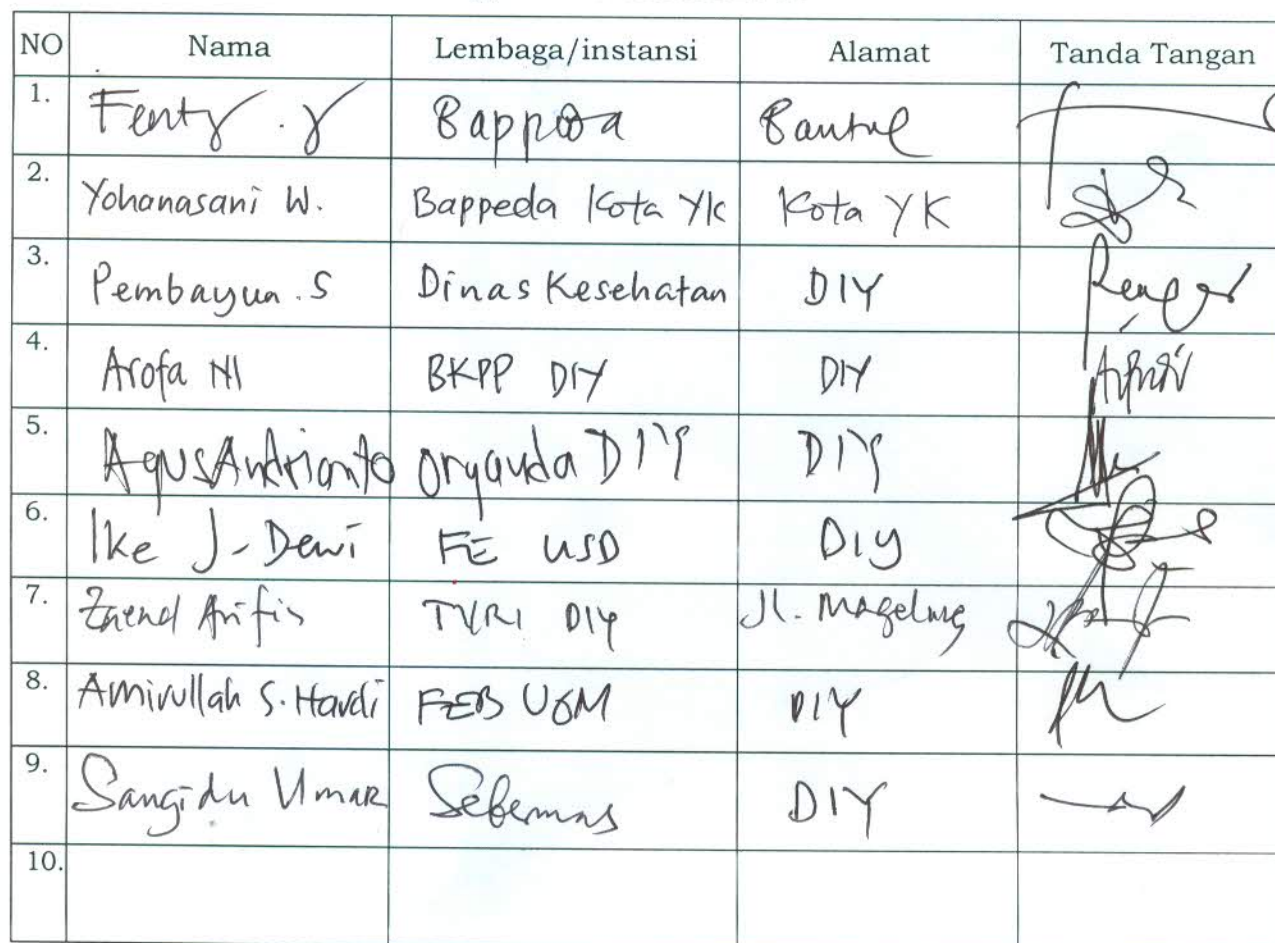 NO Nama Lembaga/instansi Alamat Tanda Tangan
1. Fenty . Y Bappeda Bantul
2. Yohanasani W. Bappeda Kota YK Kota YK
3. Pembayun . S Dinas Kesehatan DIY
4. Arofa NI BKPP DIY DIY
5. Agus Andrianto Organda DIY DIY
6. Ike J. Dewi FE USD DIY
7. Zaenal Arifin TVRI DIY Jl. Magelang
8. Amirullah S. Hardi FEB UGM DIY
9. Sangidu Umar DIY
10.